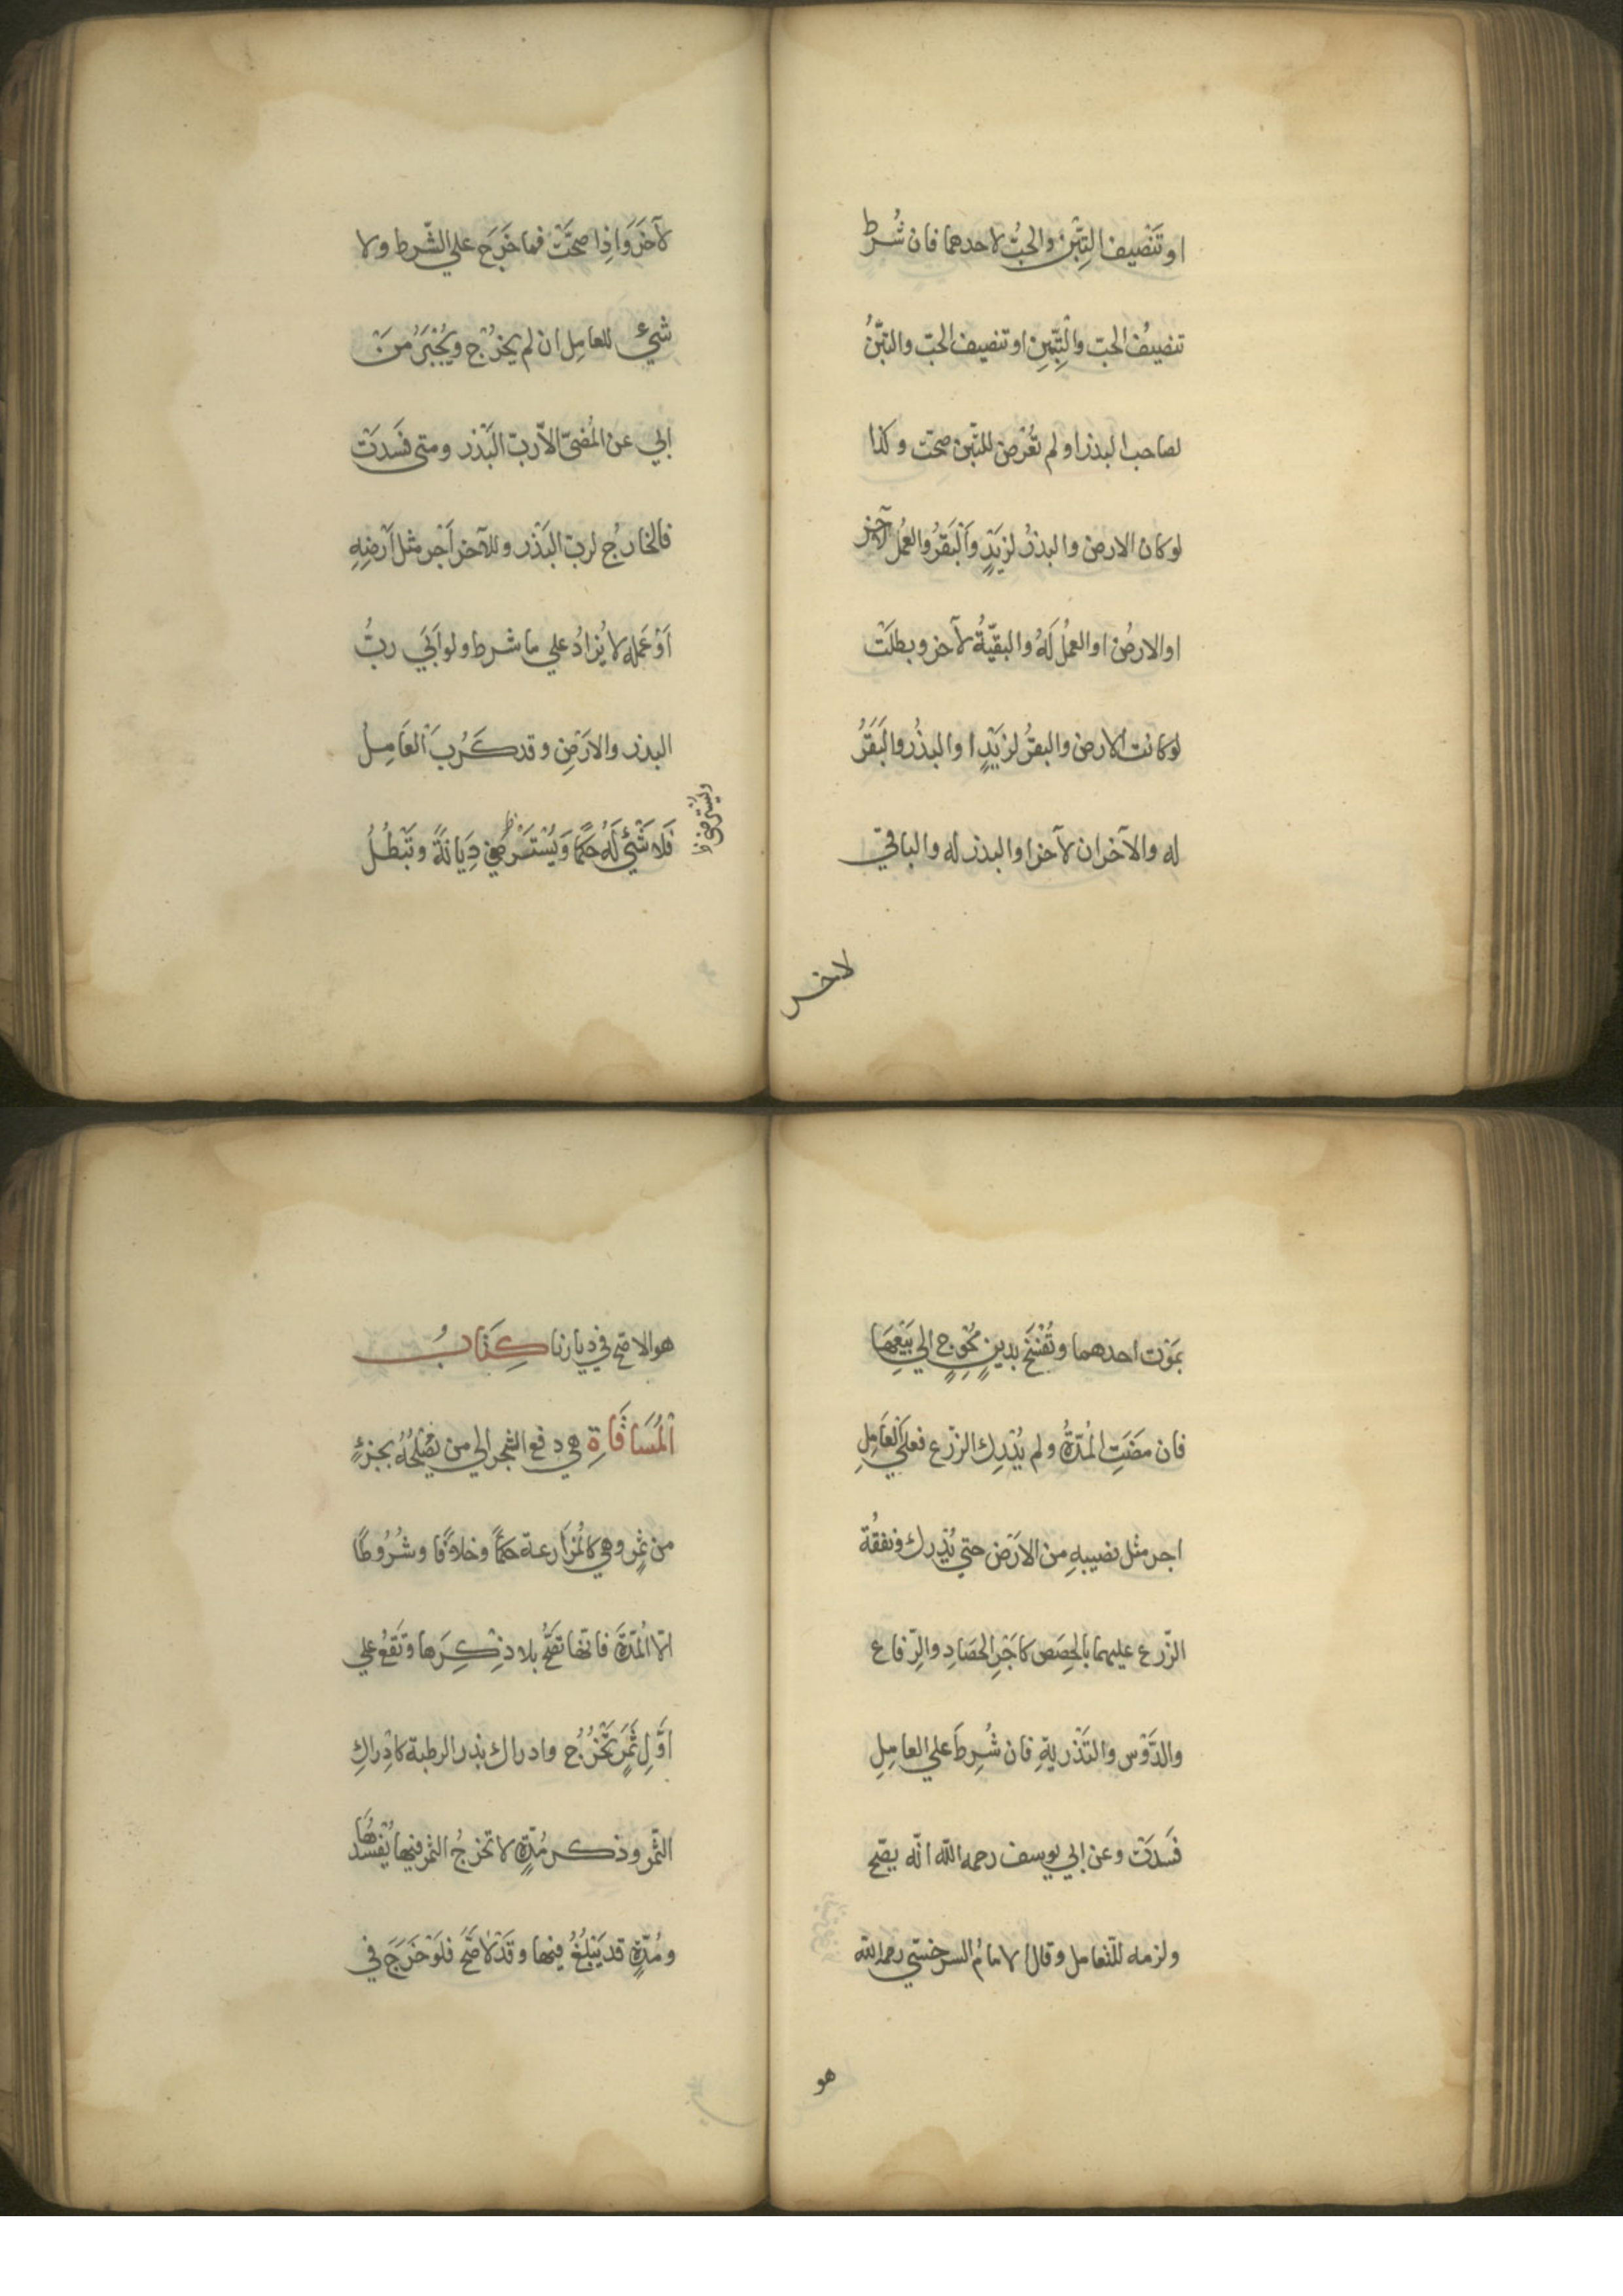 او تَنْصيف التِبْن والحبُّ لاحدهما فان شُرط
تنصيفُ الحبّ والتِّبنِ او تنصيف الحبّ والتبْنُ
لصاحب البذر او لم تُعْرض للتّبن صحّت وكذا
لو كان الارض والبذرُ لزيَدٍ وَاَلْبَقَرُ والعمُل لآخر
او الارضُ او العملُ لَهُ والبقيّةُ لآخر وبطلَتْ
لو كانت الارض والبقرُ لزيَدٍ او البذرُ والبَقَرُ
له والآخران لآخر او البذر له والباقي
لاخر
لآخَرَ وَاِذا صحّتْ فما خَرَجَ علي الشّرط ولا
شَيْئَ للعامِل ان لم يخرُجْ ويُجْبَرُ مَنْ
ابي عن المُضيّ الّا ربّ البَذْر ومتي فَسَدَتْ
فالخارجُ لربّ البَذْر وللآخر اَجر مثل اَرْضِهِ
اَوْ عَمَله لا يُزادُ علي ما شرط ولو اَبَي ربُّ
البذر والارَضِ وقد كَرُبَ العَامِلُ
فَلاَ شَئَ لَهُ حُكْمًا وَيُسْتَرْضَي دِيَانَةً وَتَبْطُلُ
ويسترضي ظ
بمَوْت احدهما وتُفْسَخُ بدينٍ مُحْوِجٍ الي بَيْعِهَا
فان مَضَتِ المُدّةُ ولم يُدْرِك الزرّع فعلَي العَامِلِ
اجر مثل نصيبهِ من الاَرْض حتي يُدْرِك ونفقُة
الزّرع عليهما بالحِصَص كاَجْرِ الحصَادِ والرِّفاع
والدَّوْس والتَذْريةِ فان شُرِطَ علي العامِلِ
فَسَدَتْ وعن ابي يوسف رحمه اللّه انّه يصّح
ولزمه للتّعامل وقال الامامُ السرخسّي رحمه اللّه
هو
هو الاصّح في ديارنا كِتَابُ
اَلْمُسَاقَاةِ هي دفع الشجر الي من يُصْلحُهُ بجزءٍ
من ثمرٍ وهي كالمُزارعة حكمًا وخلافًا وشُرُوطًا
الّا المُدّةَ فانّها تصّحُ بلا ذِكْرِهَا وتَقَعُ علي
اَوَّلِ ثَمَرٍ تَخْرُجُ وادراك بذر الرطبة كاِدْراكِ
الثّمر وذكر مُدّةٍ لا تخرجُ الثمر فيها يُفْسدُهَا
ومُدّةٍ قد يَبْلُغُ فيها وقَدْ لا صّحَ فلَوْ خَرَجَ في